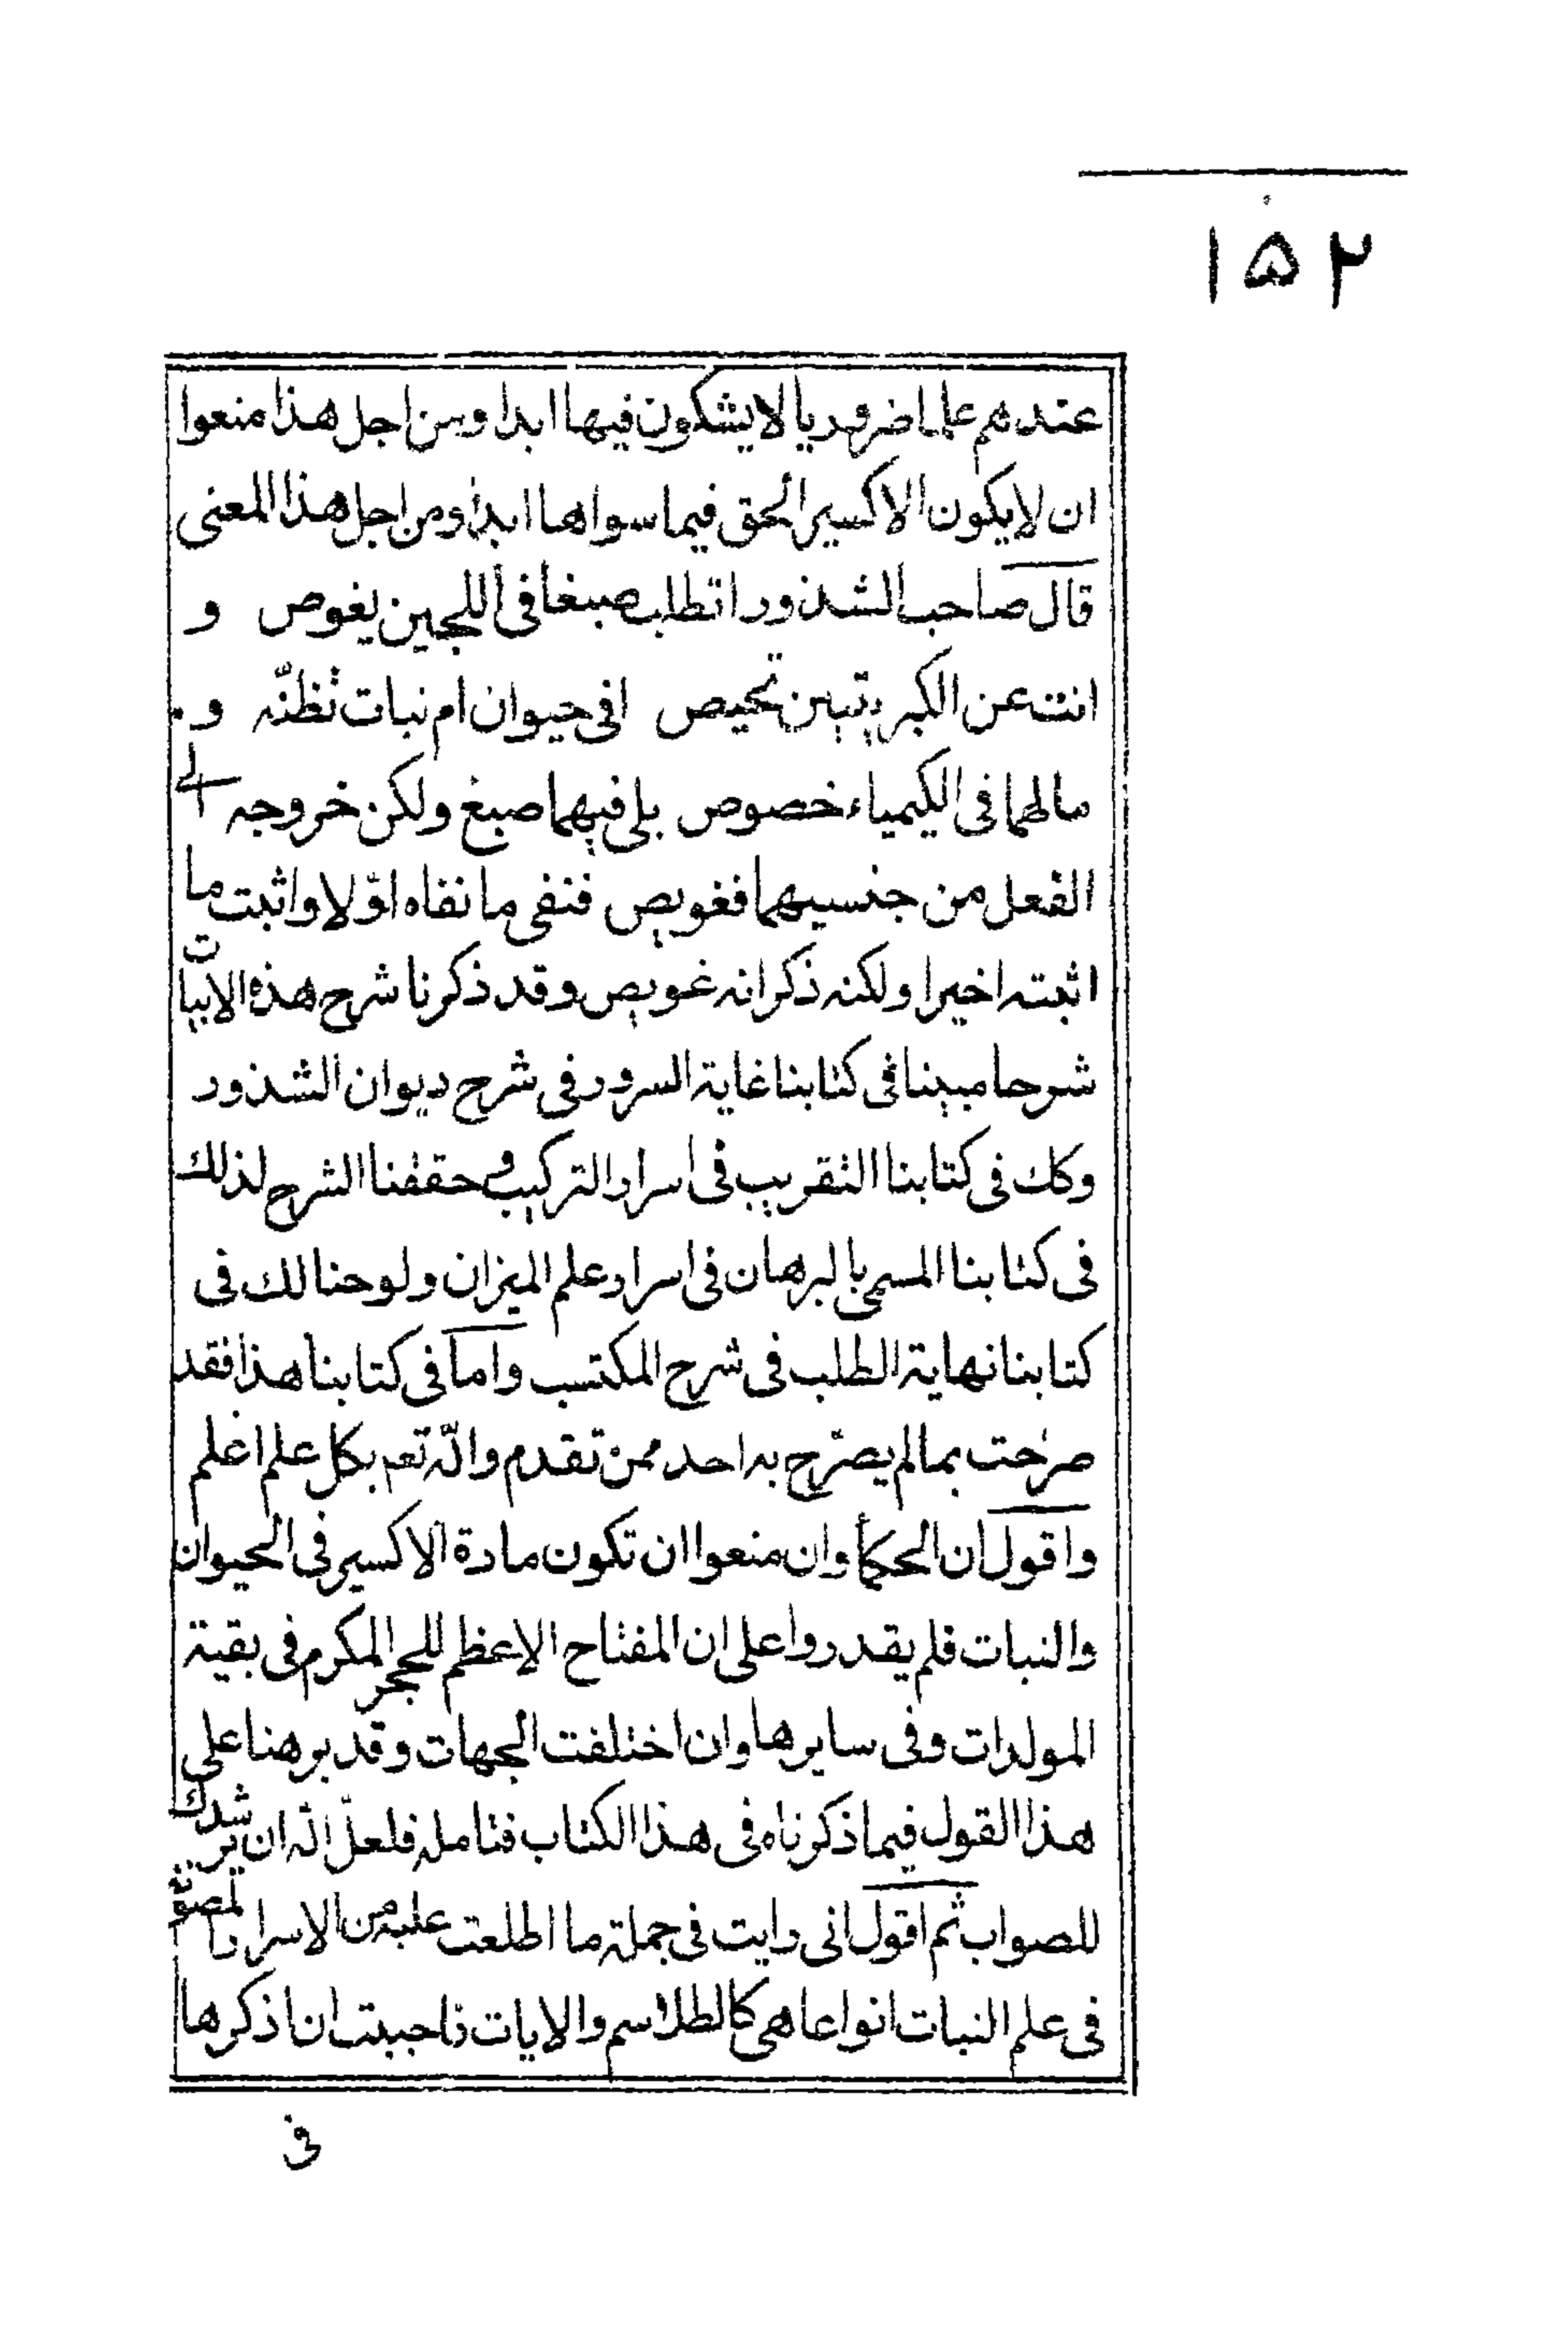 ١٥٢
عندهم علما ضروريا لا يشكون فيها ابدا ومن اجل هذا منعوا
ان لا يكون الاكسير الحق فيما سواها ابدا ومن اجل هذا المعنى
قال صاحب الشذور اتطلب صبغا فى اللجين يغوص و
انت عن الكبريتين تحيص افى حيوان ام نبات تظنّه و
مالهما فى الكيمياء خصوص بلى فيهما صبغ ولكن خروجه الى
الفعل من جنسيهما فغويص فنفى ما نفاه اوّلا واثبت ما
اثبته اخيرا ولكنه ذكر انه غويص وقد ذكرنا شرح هذه الابيات
شرحا مبينا فى كتابنا غاية السرور فى شرح ديوان الشذور
وكك فى كتابنا التقريب فى اسرار التركيب و حققنا الشرح لذلك
فى كتابنا المسمى بالبرهان فى اسرار علم الميزان ولوحنا لك فى
كتابنا نهاية الطلب فى شرح المكتسب واما فى كتابنا هذا فقد
صرحت بما لم يصرّح به احد ممن تقدم والله تعم بكل علم اعلم
واقول ان الحكمأ وان منعوا ان تكون مادة الاكسير فى الحيوان
والنبات فلم يقدروا على ان المفتاح الاعظم للحجر المكرم فى بقية
المولدات وفى سايرها وان اختلفت الجهات وقد برهنا على
هذا القول فيما ذكرناه فى هذا الكتاب فتامله فلعلّ الله ان يرشدك
للصواب ثم اقول انى رايت فى جملة ما اطلعت عليه من الاسرار المصونة
فى علم النبات انواعا هى كالطلاسم والايات فاحببت ان اذكرها
فى